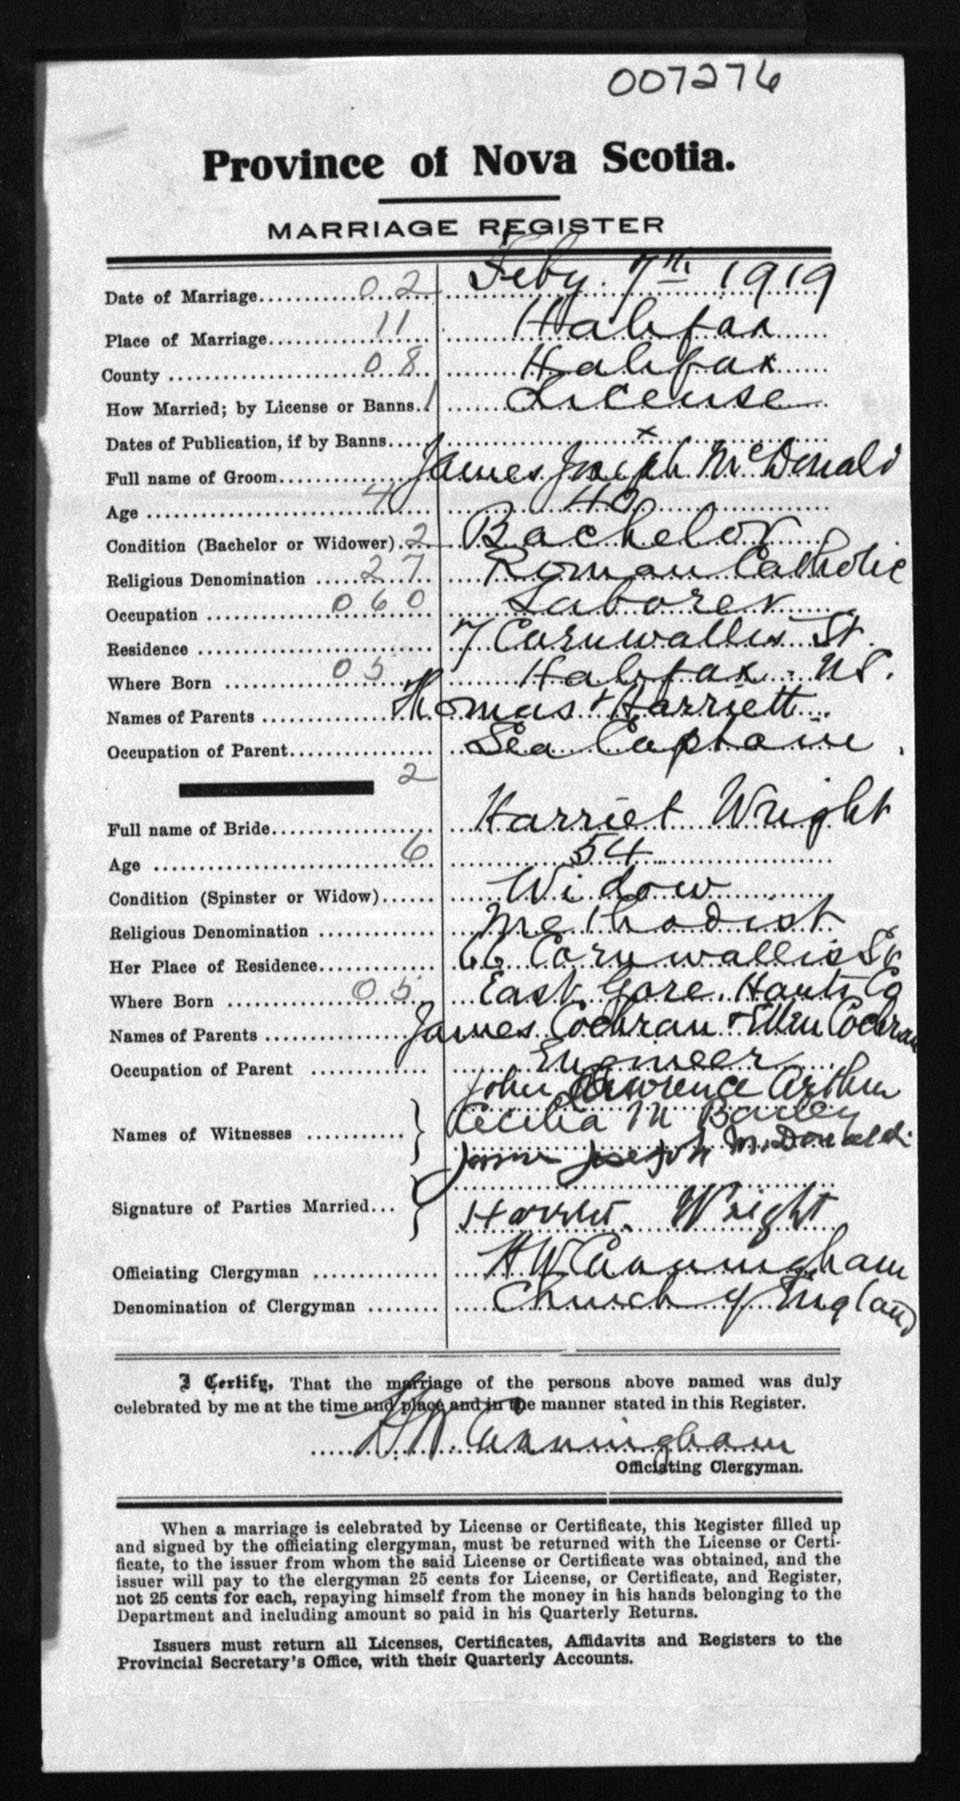 007276
Province of Nova Scotia.
MARRIAGE REGISTER
Date of Marriage 02 Feby. 7th 1919
Place of Marriage 11 Halifax
County 08 Halifax
How Married; by License or Banns 1 License
Dates of Publication, if by Banns x
Full name of Groom James Joseph McDonald
Age 4 40
Condition (Bachelor or Widower) 2 Bachelor
Religious Denomination 27 Roman Catholic
Occupation 060 Laborer
Residence 7 Cornwallis St.
Where Born 05 Halifax. NS.
Names of Parents Thomas + Harriett
Occupation of Parent Sea Captain.
2
Full name of Bride Harriet Wright
Age 6 54
Condition (Spinster or Widow) Widow
Religious Denomination Methodist
Her Place of Residence 66 Cornwallis St
Where Born 05 East Gore. Hants Co
Names of Parents James Cochran + Ellen Cochran
Occupation of Parent Engineer
John Lawrence Arthur
Names of Witnesses Cecilia M Bailey
James Joseph McDonald.
Signature of Parties Married... Harriet. Wright
Officiating Clergyman H W Cunningham
Denomination of Clergyman Church of England
I Certify, That the marriage of the persons above named was duly
celebrated by me at the time and place and in the manner stated in this Register.
H W. Cunningham
Officiating Clergyman.
When a marriage is celebrated by License or Certificate, this Register filled up
and signed by the officiating clergyman, must be returned with the License or Certi-
ficate, to the issuer from whom the said License or Certificate was obtained, and the
issuer will pay to the clergyman 25 cents for License, or Certificate, and Register,
not 25 cents for each, repaying himself from the money in his hands belonging to the
Department and including amount so paid in his Quarterly Returns.
Issuers must return all Licenses, Certificates, Affidavits and Registers to the
Provincial Secretary's Office, with their Quarterly Accounts.